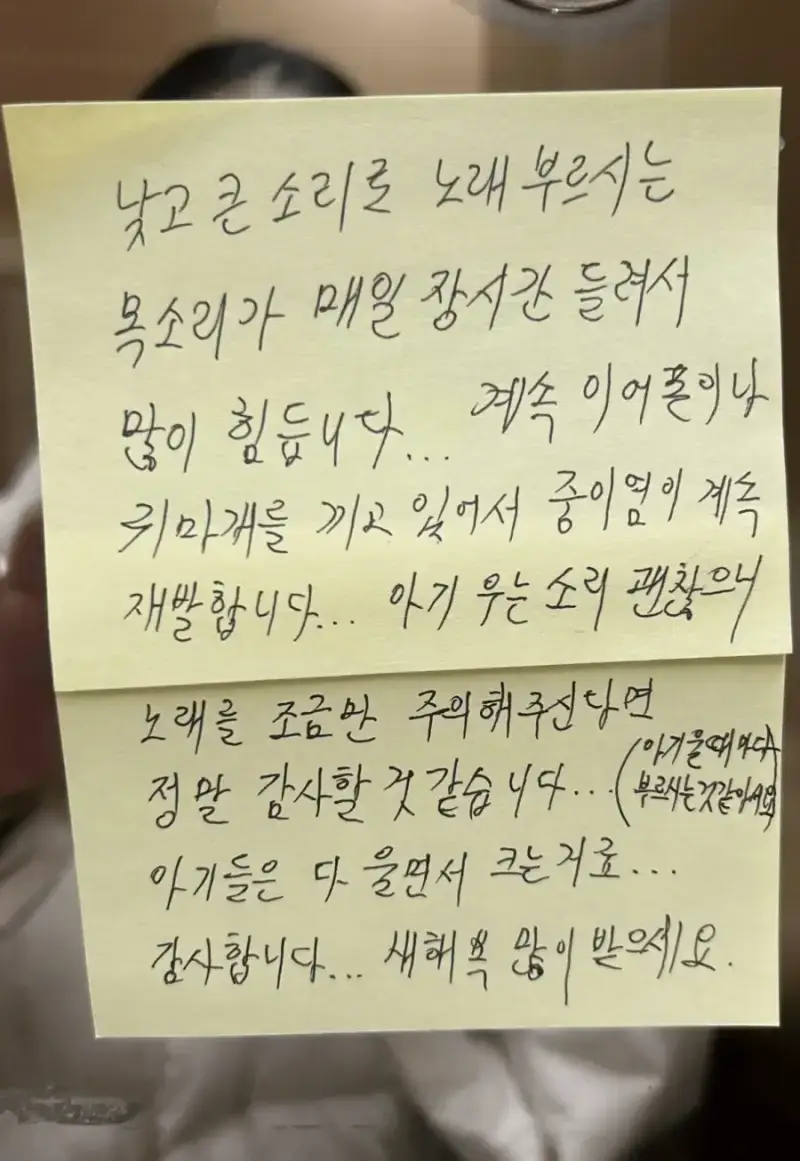 낮고 큰 소리로 노래 부르시는
목소리가 매일 장시간 들려서
많이 힘듭니다... 계속 이어폰이나
귀마개를 끼고 있어서 중이염이 계속
재발합니다... 아기 우는 소리 괜찮으니
노래를 조금만 주의해주신다면
정말 감사할 것 같습니다... (아기 울 때마다
부르시는것같아서요)
아기들은 다 울면서 크는거죠...
감사합니다... 새해 복 많이 받으세요.